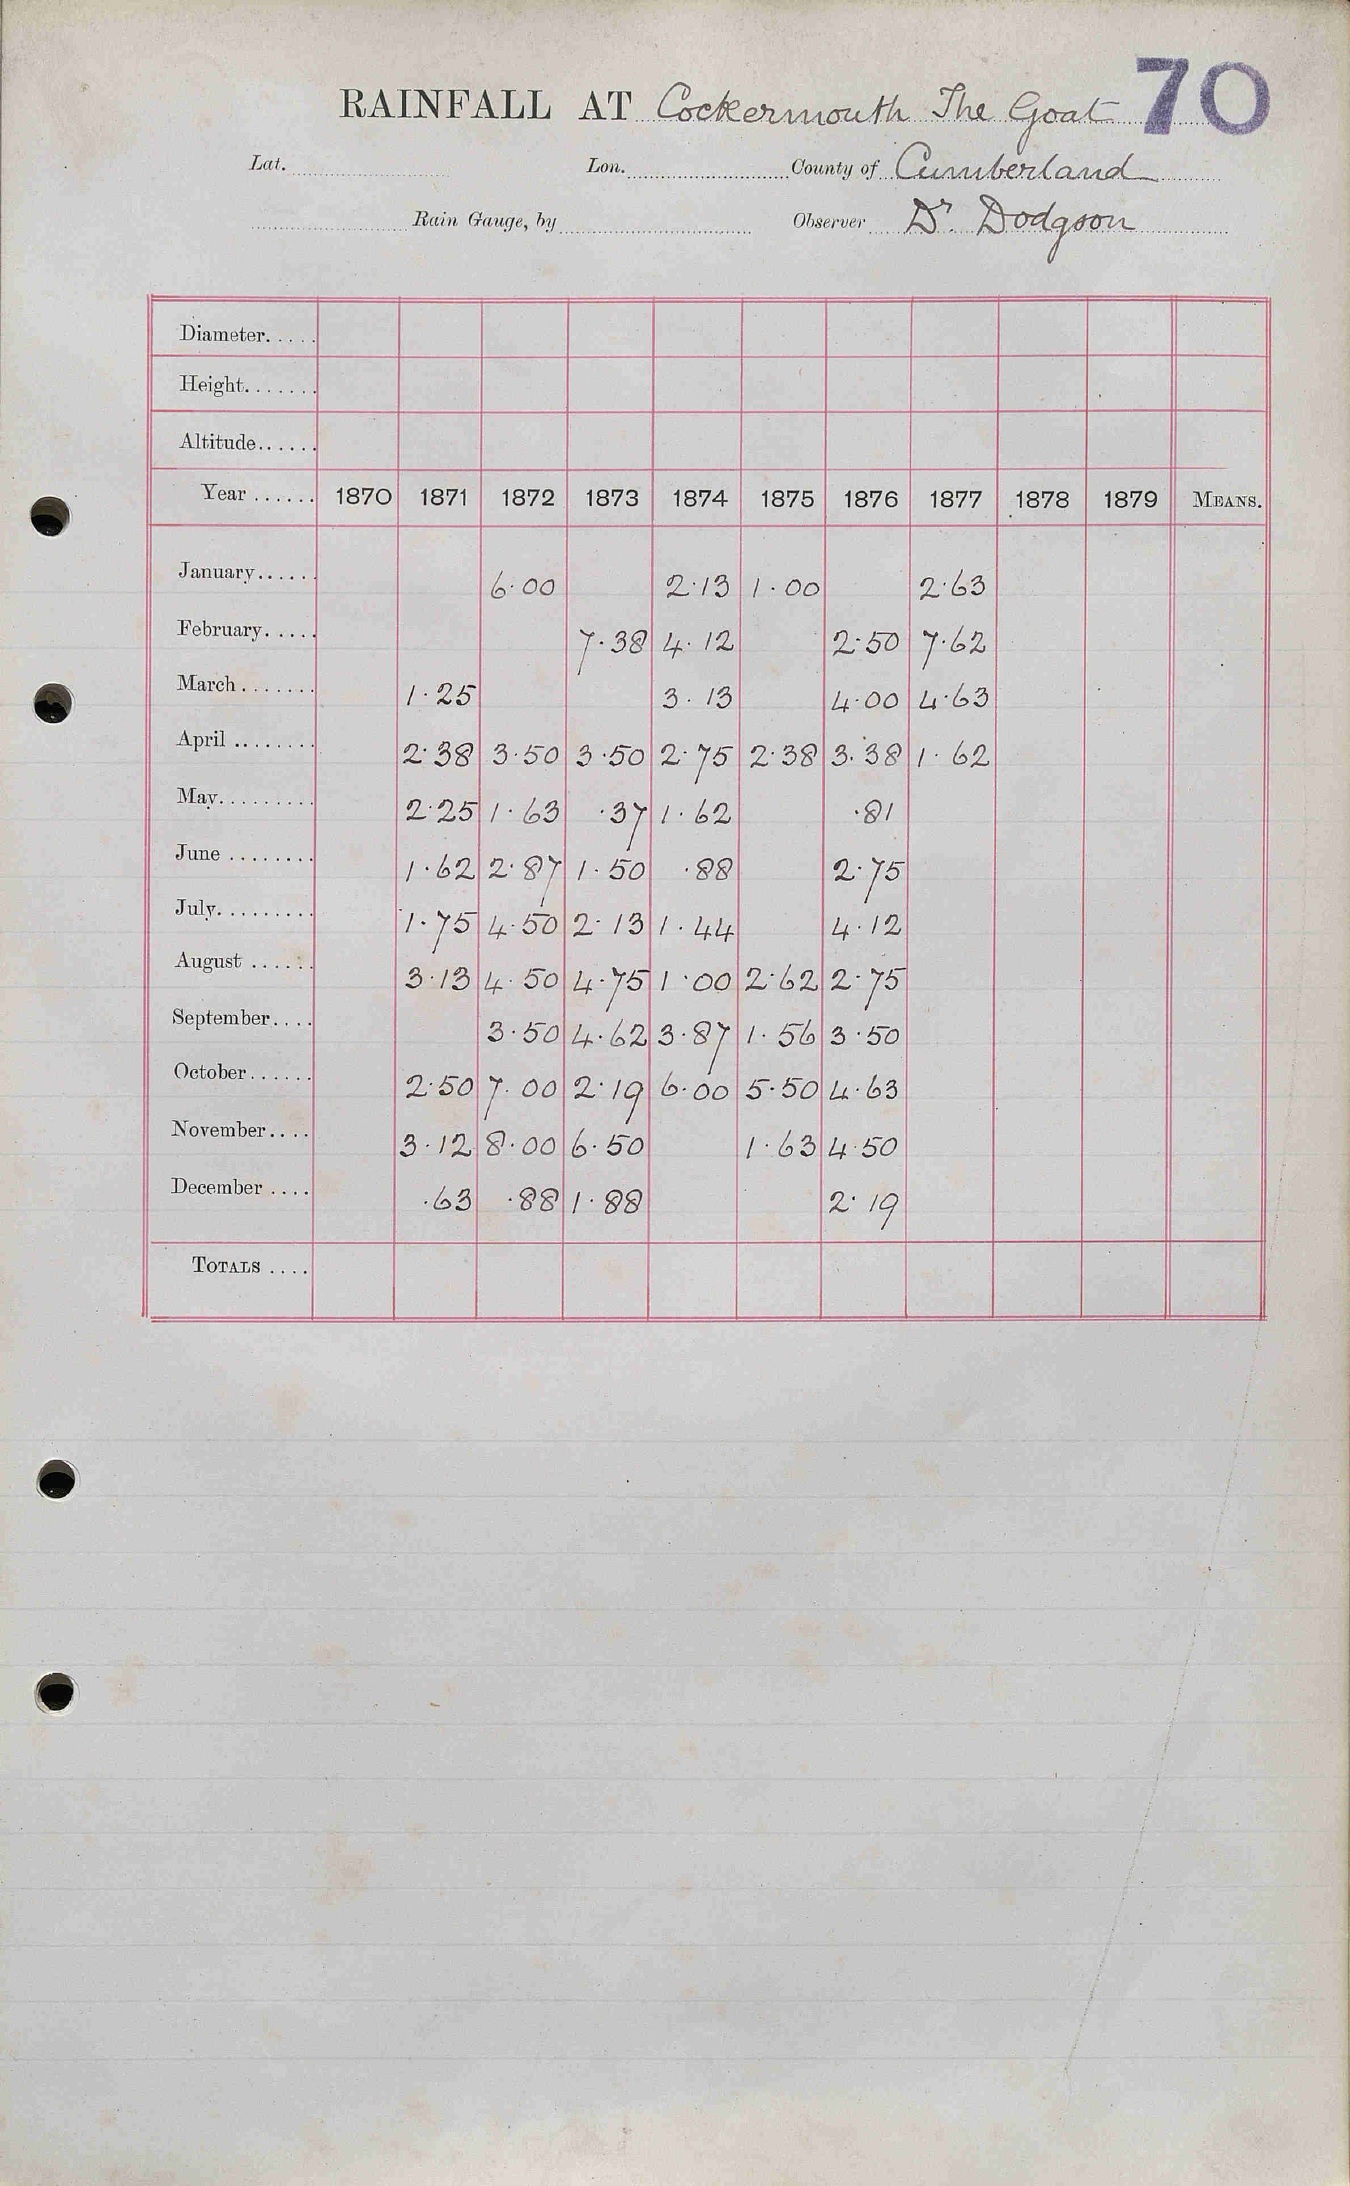 RAINFALL AT Cockermouth The Goat 70
Lat. Lon. County of Cumberland
Rain Gauge, by Observer Dr. Dodgson
Diameter.....
Height.......
Altitude......
Year ...... 1870 1871 1872 1873 1874 1875 1876 1877 1878 1879 MEANS.
January...... 6.00 2.13 1.00 2.63
February..... 7.38 4.12 2.50 7.62
March....... 1.25 3.13 4.00 4.63
April ........ 2.38 3.50 3.50 2.75 2.38 3.38 1.62
May......... 2.25 1.63 .37 1.62 .81
June ........ 1.62 2.87 1.50 .88 2.75
July......... 1.75 4.50 2.13 1.44 4.12
August ...... 3.13 4.50 4.75 1.00 2.62 2.75
September.... 3.50 4.62 3.87 1.56 3.50
October...... 2.50 7.00 2.19 6.00 5.50 4.63
November.... 3.12 8.00 6.50 1.63 4.50
December .... .63 .88 1.88 2.19
TOTALS ....